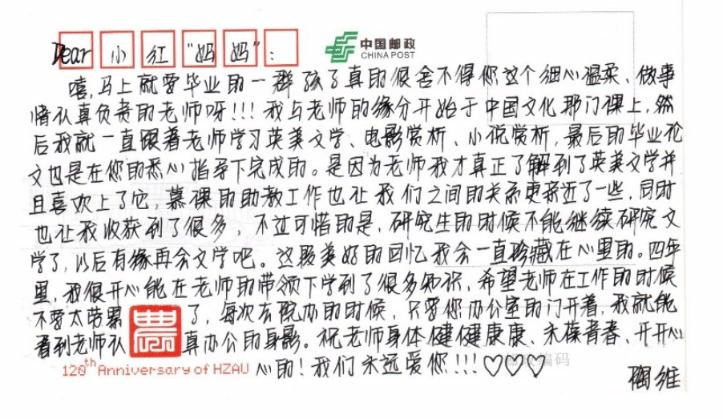 Dear 小红“妈妈”：
中国邮政
CHINA POST
嘻，马上就要毕业的一群孩子真的很舍不得你这个细心温柔、做事
情认真负责的老师呀!!! 我与老师的缘分开始于中国文化那门课上，然
后我就一直跟着老师学习英美文学、电影赏析、小说赏析，最后的毕业论
文也是在您的悉心指导下完成的。是因为老师我才真正了解到了英美文学并
且喜欢上了它，慕课的助教工作也让我们之间的关系更亲近了一些，同时
也让我收获到了很多，不过可惜的是，研究生的时候不能继续研究文
学了，以后有缘再会文学吧。这段美好的回忆我会一直珍藏在心里的。四年
里，我很开心能在老师的带领下学到了很多知识，希望老师在工作的时候
不要太劳累了，每次去院办的时候，只要您办公室的门开着，我就能
看到老师认真办公的身影。祝老师身体健健康康、永葆青春、开开心
心的！我们永远爱你!!! ♡♡♡
農
120th Anniversary of HZAU
邮政编码
陶维